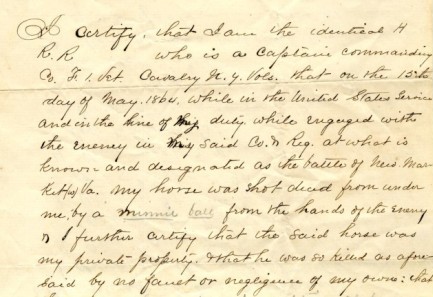 I certify, that I am the identical H
R. R who is a Captain commanding
Co. F. 1. Vet Cavalry N. Y. Vols. that on the 15th
day of May. 1864, while in the United States Service
and in the line of my duty, while engaged with
the enemy in my said Co. & Reg. at what is
known and designated as the battle of New. Mar
Ket Va. my horse was shot dead from under
me, by a minnie ball from the hands of the Enemy
& I further certify that the said horse was
my private property. & that he was so killed as afore
said by no fault or negligence of my own: that